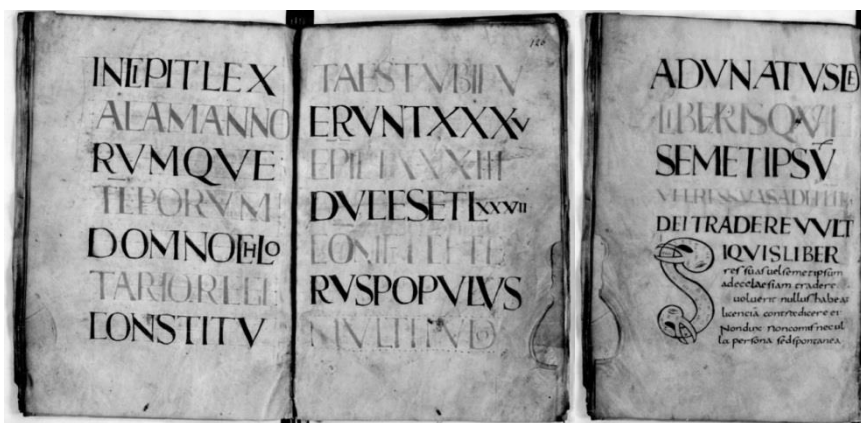 INCIPIT LEX
ALAMANNO
RVMQVE
TEPORVM
DOMNO CHLO
TARIO REGI
CONSTITV
126
TA EST VBI FV
ERVNT XXXV
EPI ET XXXIIII
DVCES ET LXXVII
COMITES ET CE
RVS POPVLVS
MVLTITVDO
ADVNATVS DE
LIBERIS QVI
SEMETIPSV
DEI TRADERE VVLT
SIQVIS LIBER
res suas uel semetipsum
ad ecclaesiam tradere
uoluerit nullus habeat
licenciā contradicere ei
Non dux non comis nec ul
la persona sed spontanea